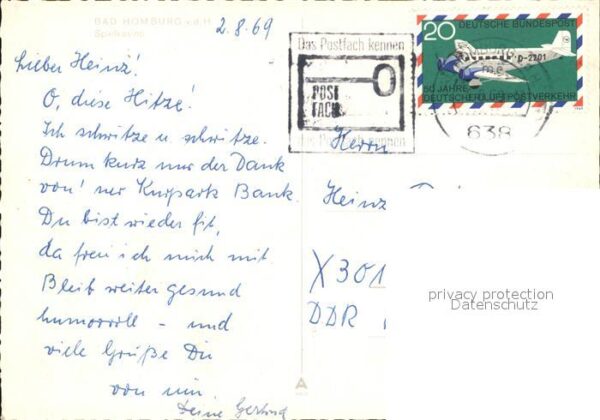 BAD HOMBURG v.d.H.
Spielkasino
2.8.69
Lieber Heinz!
O, diese Hitze!
Ich schwitze u. schwitze.
Drum kurz nur der Dank
von 'ner Kurpark Bank.
Du bist wieder fit,
da freu ich mich mit
Bleib weiter gesund
humorvoll – und
viele Grüße Du
von mir.
Deine Gertrud
Das Postfach kennen
POST
FACH
das Postfach kennen
20
DEUTSCHE BUNDESPOST
D-2201
50 JAHRE
DEUTSCHER LUFTPOSTVERKEHR
638
Herrn
Heinz
X301
DDR
privacy protection
Datenschutz
A